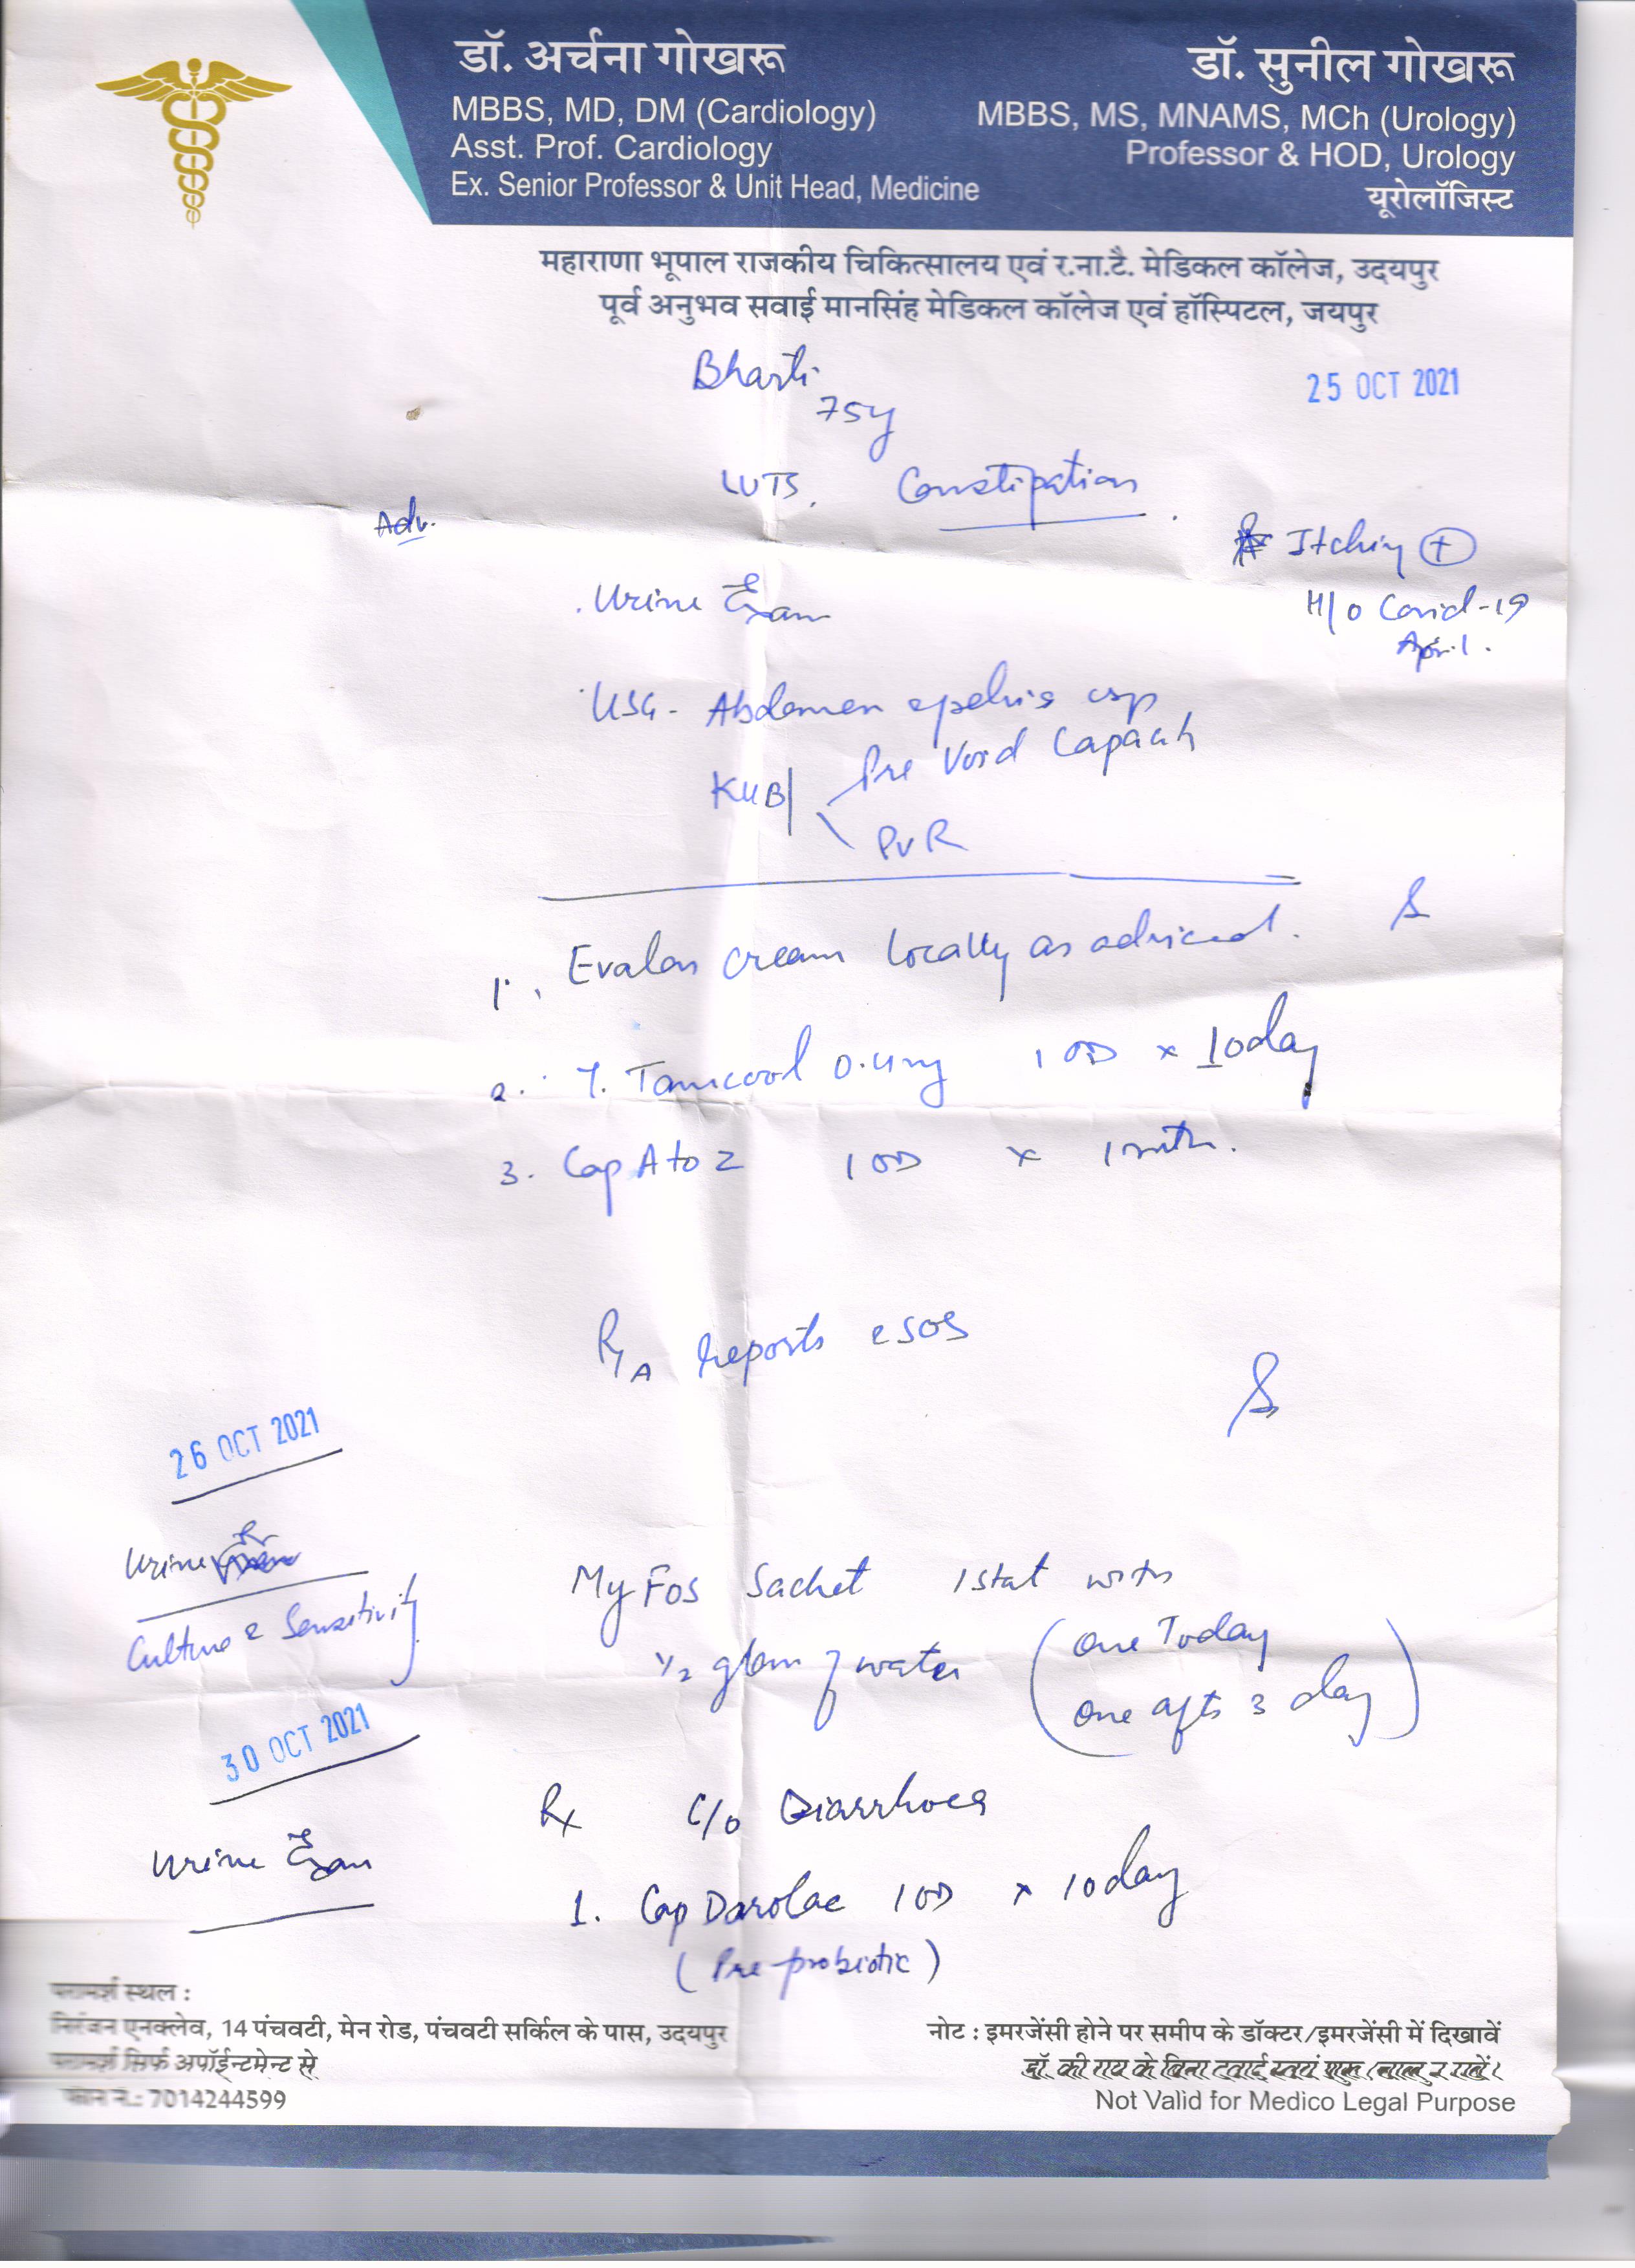 डॉ. अर्चना गोखरू
MBBS, MD, DM (Cardiology)
Asst. Prof. Cardiology
Ex. Senior Professor & Unit Head, Medicine
डॉ. सुनील गोखरू
MBBS, MS, MNAMS, MCh (Urology)
Professor & HOD, Urology
यूरोलॉजिस्ट
महाराणा भूपाल राजकीय चिकित्सालय एवं र.ना.टै. मेडिकल कॉलेज, उदयपुर
पूर्व अनुभव सवाई मानसिंह मेडिकल कॉलेज एवं हॉस्पिटल, जयपुर
Bharti
25 OCT 2021
75y
LUTS, Constipation.
Adv.
Itching +
H/o Covid-19
April.
Urine Exam
USG - Abdomen & pelvis esp
KUB Pre Void Capacity
PVR
1. Evalon cream locally as adviced.
2. T. Tamcool 0.4mg 1 OD x 10day
3. Cap A to Z 1 OD x 1 mth.
reports & SOS
26 OCT 2021
Urine
Culture & Sensitivity
MyFos Sachet 1 stat with
1/2 glass of water (one Today
one after 3 day)
30 OCT 2021
Urine Exam
Rx C/o Diarrhoea
1. Cap Darolac 1 OD x 10day
(Pre probiotic)
परामर्श स्थल :
निरंजन एनक्लेव, 14 पंचवटी, मेन रोड, पंचवटी सर्किल के पास, उदयपुर
परामर्श सिर्फ अपॉईन्टमेन्ट से
फोन नं.: 7014244599
नोट : इमरजेंसी होने पर समीप के डॉक्टर/इमरजेंसी में दिखावें
डॉ. की राय के बिना दवाई स्वयं शुरू/चालू न रखें।
Not Valid for Medico Legal Purpose